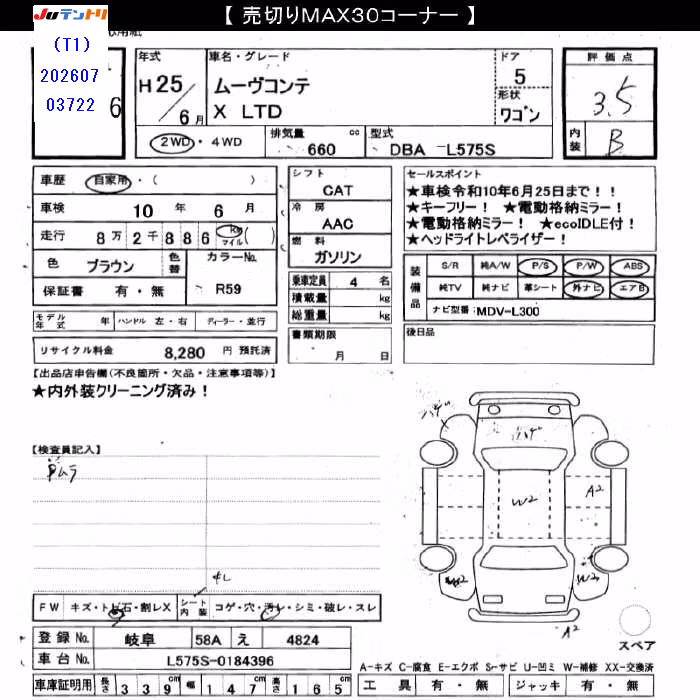 【 売切りMAX30コーナー 】
JUテントリ
(T1)
202607
03722
6
年式 車名・グレード ドア 評価点
H25/6月 ムーヴコンテ 5 3.5
X LTD 形状 ワゴン
2WD・4WD 内装 B
排気量 660 cc 型式 DBA -L575S
車歴 自家用・( )
車検 10 年 6 月
走行 8万2千886 km マイル ( )
色 ブラウン 色替 カラーNo. R59
保証書 有・無
シフト CAT
冷房 AAC
燃料 ガソリン
乗車定員 4 名
積載量 kg
総重量 kg
セールスポイント
★車検令和10年6月25日まで!!
★キーフリー! ★電動格納ミラー!
★電動格納ミラー! ★ecoIDLE付!
★ヘッドライトレベライザー!
装備品 S/R 純A/W P/S P/W ABS
純TV 純ナビ 革シート 外ナビ エアB
ナビ型番:MDV-L300
モデル年式 年 ハンドル 左・右 ディーラー・並行
書類期限 月 日
後日品
リサイクル料金 8,280 円 預託済
【出品店申告欄(不良箇所・欠品・注意事項等)】
★内外装クリーニング済み!
【検査員記入】
ハゲ ハゲ
W2 A2
W2 W2
A2
スペア
FW キズ・トビ石・割レX シート内装 コゲ・穴・汚レ・シミ・破レ・スレ
登録No. 岐阜 58A え 4824
車台No. L575S-0184396
車庫証明用 長さ 339cm 幅 147cm 高さ 165cm
A-キズ C-腐食 E-エクボ S-サビ U-凹ミ W-補修 XX-交換済
工具 有・無 ジャッキ 有・無